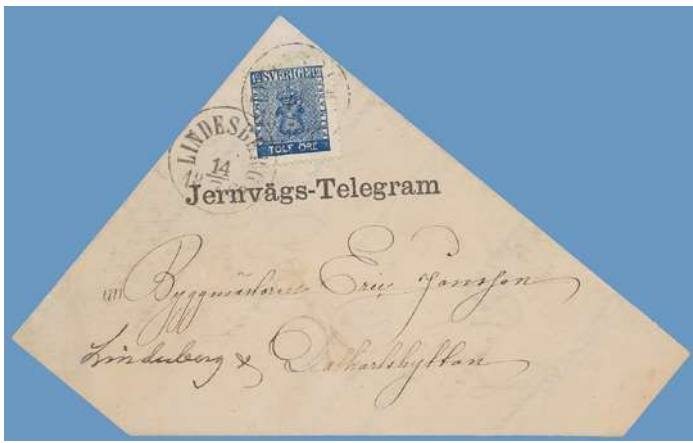 SVERIGE
TOLF ÖRE
LINDESBERG
14
Jernvägs-Telegram
Byggmästaren Eric Jansson
Lindesberg &